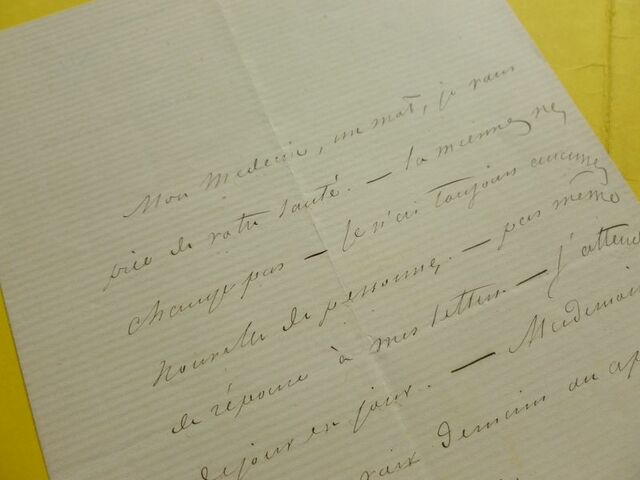 Mon Médecin, un mot, je vous
prie de votre santé. — la mienne ne
change pas — Je n'ai toujours aucune
nouvelle de personne, — pas même
de réponse à mes lettres — J'attend
de jour en jour. — Mademoi
demain ou ap